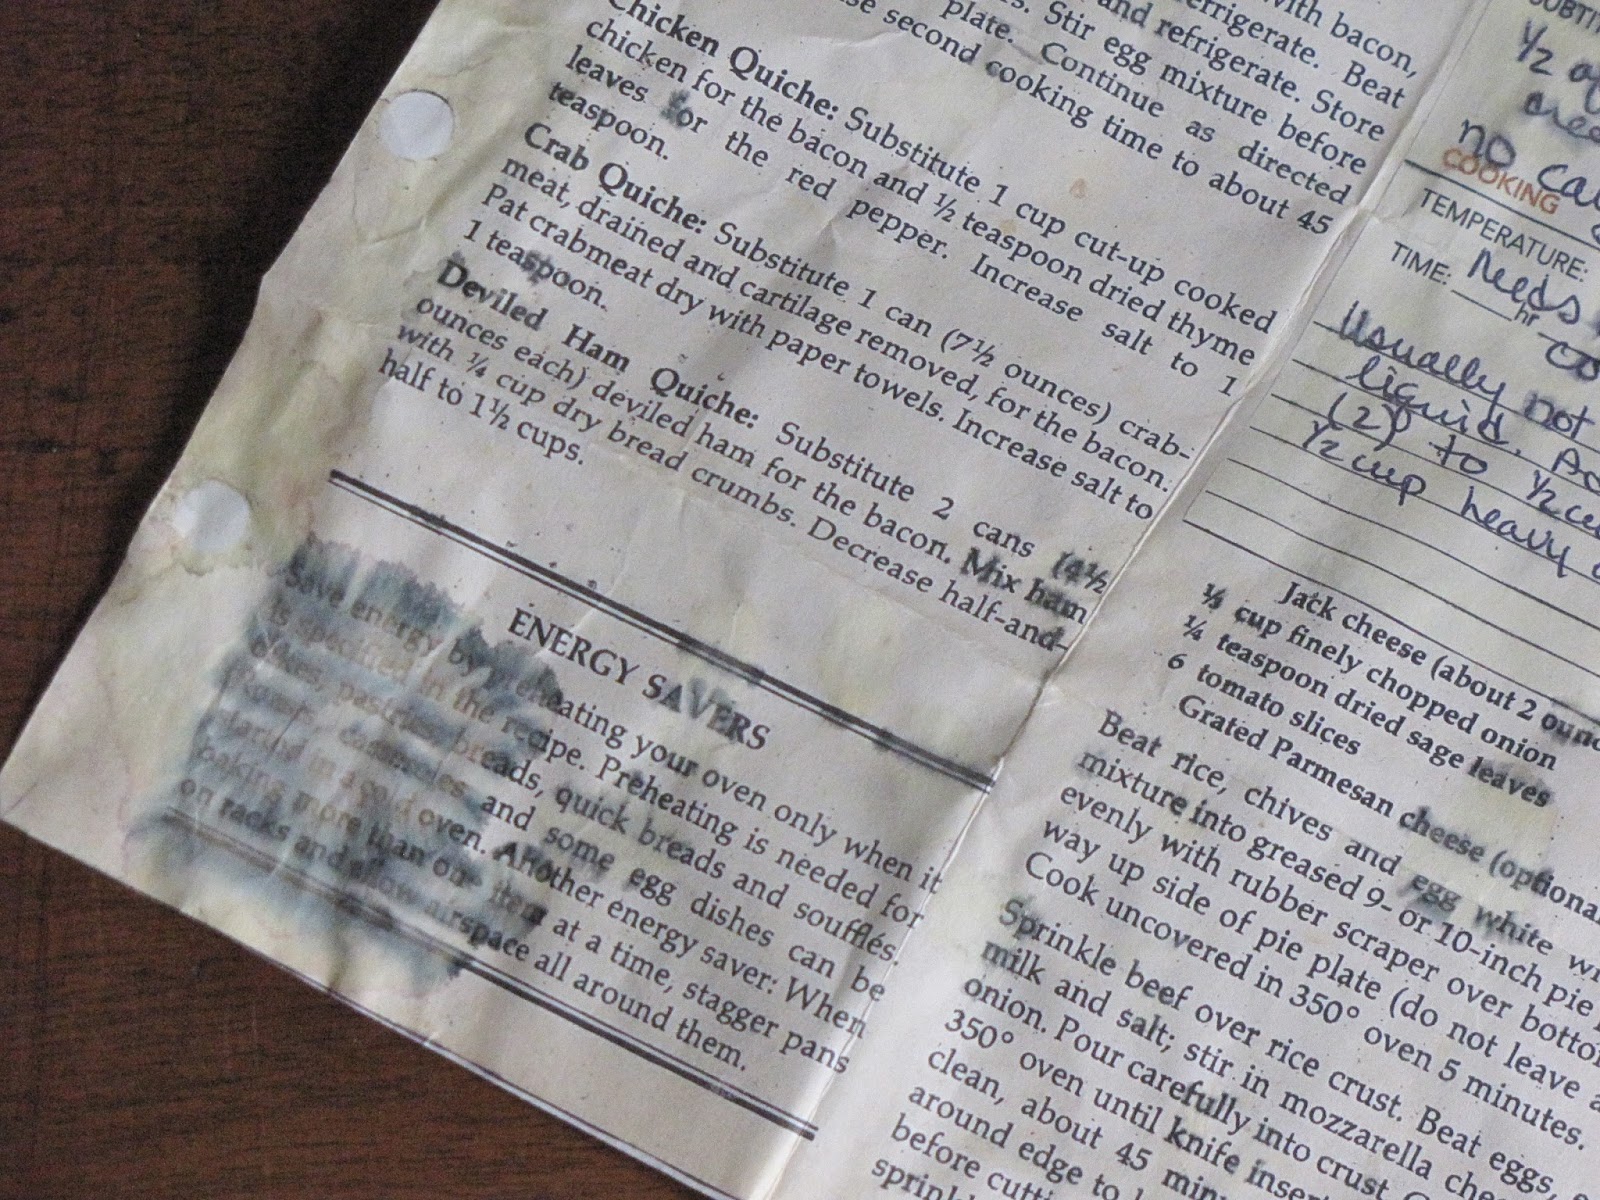 with bacon,
refrigerate. Beat
and refrigerate. Store
Stir egg mixture before
plate. Continue as directed
second cooking time to about 45
Chicken Quiche: Substitute 1 cup cut-up cooked
chicken for the bacon and ½ teaspoon dried thyme
leaves for the red pepper. Increase salt to 1
teaspoon.
Crab Quiche: Substitute 1 can (7½ ounces) crab-
meat, drained and cartilage removed, for the bacon.
Pat crabmeat dry with paper towels. Increase salt to
1 teaspoon.
Deviled Ham Quiche: Substitute 2 cans (4½
ounces each) deviled ham for the bacon. Mix ham
with ¼ cup dry bread crumbs. Decrease half-and-
half to 1½ cups.
ENERGY SAVERS
Save energy by preheating your oven only when it
is specified in the recipe. Preheating is needed for
cakes, pastries, breads, quick breads and soufflés.
Roasts, casseroles and some egg dishes can be
started in a cold oven. Another energy saver: When
baking more than one item at a time, stagger pans
on racks and allow airspace all around them.
½ of
no
COOKING
TEMPERATURE:
TIME: Needs
hr
Usually not
liquid.
(2) to ½ cu
½ cup heavy
Jack cheese (about 2
⅓ cup finely chopped onion
¼ teaspoon dried sage leaves
6 tomato slices
Grated Parmesan cheese (optional
Beat rice, chives and egg white
mixture into greased 9- or 10-inch pie
evenly with rubber scraper over
way up side of pie plate (do not leave a
Cook uncovered in 350° oven 5 minutes.
Sprinkle beef over rice crust. Beat eggs
milk and salt; stir in mozzarella
onion. Pour carefully into crust
350° oven until knife
clean, about 45
around edge to
before